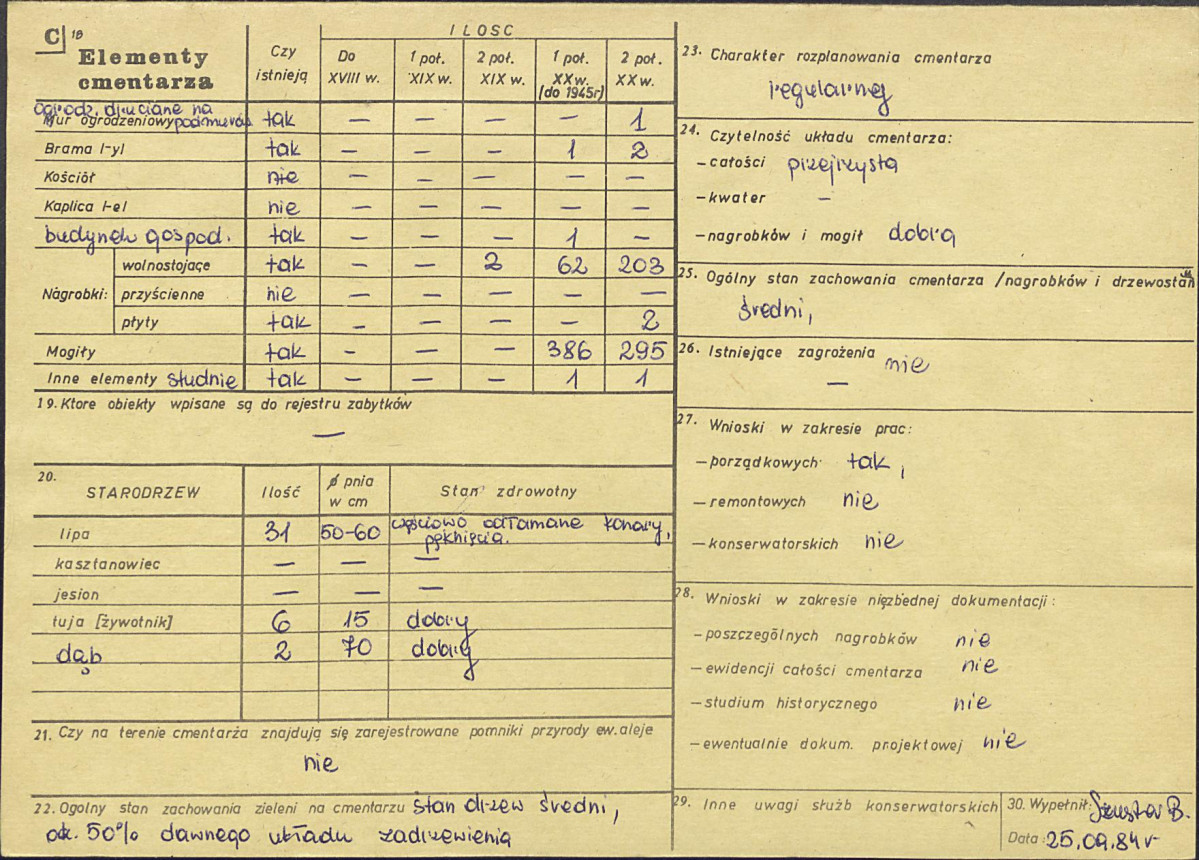 C 18 Elementy cmentarza
Czy istnieją
ILOSC
Do XVIII w.
1 poł. XIX w.
2 poł. XIX w.
1 poł. XX w. (do 1945r)
2 poł. XX w.
ogrodz. druciane na
Mur ogrodzeniowy podmurów tak — — — — 1
Brama /-y/ tak — — — 1 2
Kościół nie — — — — —
Kaplica /-e/ nie — — — — —
budynek gospod. tak — — — 1 —
Nagrobki: wolnostojące tak — — 2 62 203
przyścienne nie — — — — —
płyty tak — — — — 2
Mogiły tak — — — 386 295
Inne elementy studnie tak — — — 1 1
19. Ktore obiekty wpisane są do rejestru zabytków
—
20. STARODRZEW Ilość ø pnia w cm Stan zdrowotny
lipa 31 50-60 częściowo odłamane konary, pęknięcia.
kasztanowiec — — —
jesion — — —
tuja [żywotnik] 6 15 dobry
dąb 2 70 dobry
21. Czy na terenie cmentarza znajdują się zarejestrowane pomniki przyrody ew. aleje
nie
22. Ogolny stan zachowania zieleni na cmentarzu stan drzew średni,
ok. 50% dawnego układu zadrzewienia
23. Charakter rozplanowania cmentarza
regularny
24. Czytelność układu cmentarza:
- całości przejrzysta
- kwater —
- nagrobków i mogił dobra
25. Ogólny stan zachowania cmentarza /nagrobków i drzewostanu
średni,
26. Istniejące zagrożenia nie
—
27. Wnioski w zakresie prac:
- porządkowych tak,
- remontowych nie
- konserwatorskich nie
28. Wnioski w zakresie niezbednej dokumentacji:
- poszczególnych nagrobków nie
- ewidencji całości cmentarza nie
- studium historycznego nie
- ewentualnie dokum. projektowej nie
29. Inne uwagi służb konserwatorskich
30. Wypełnił: Szuster B.
Data: 25.09.84 r